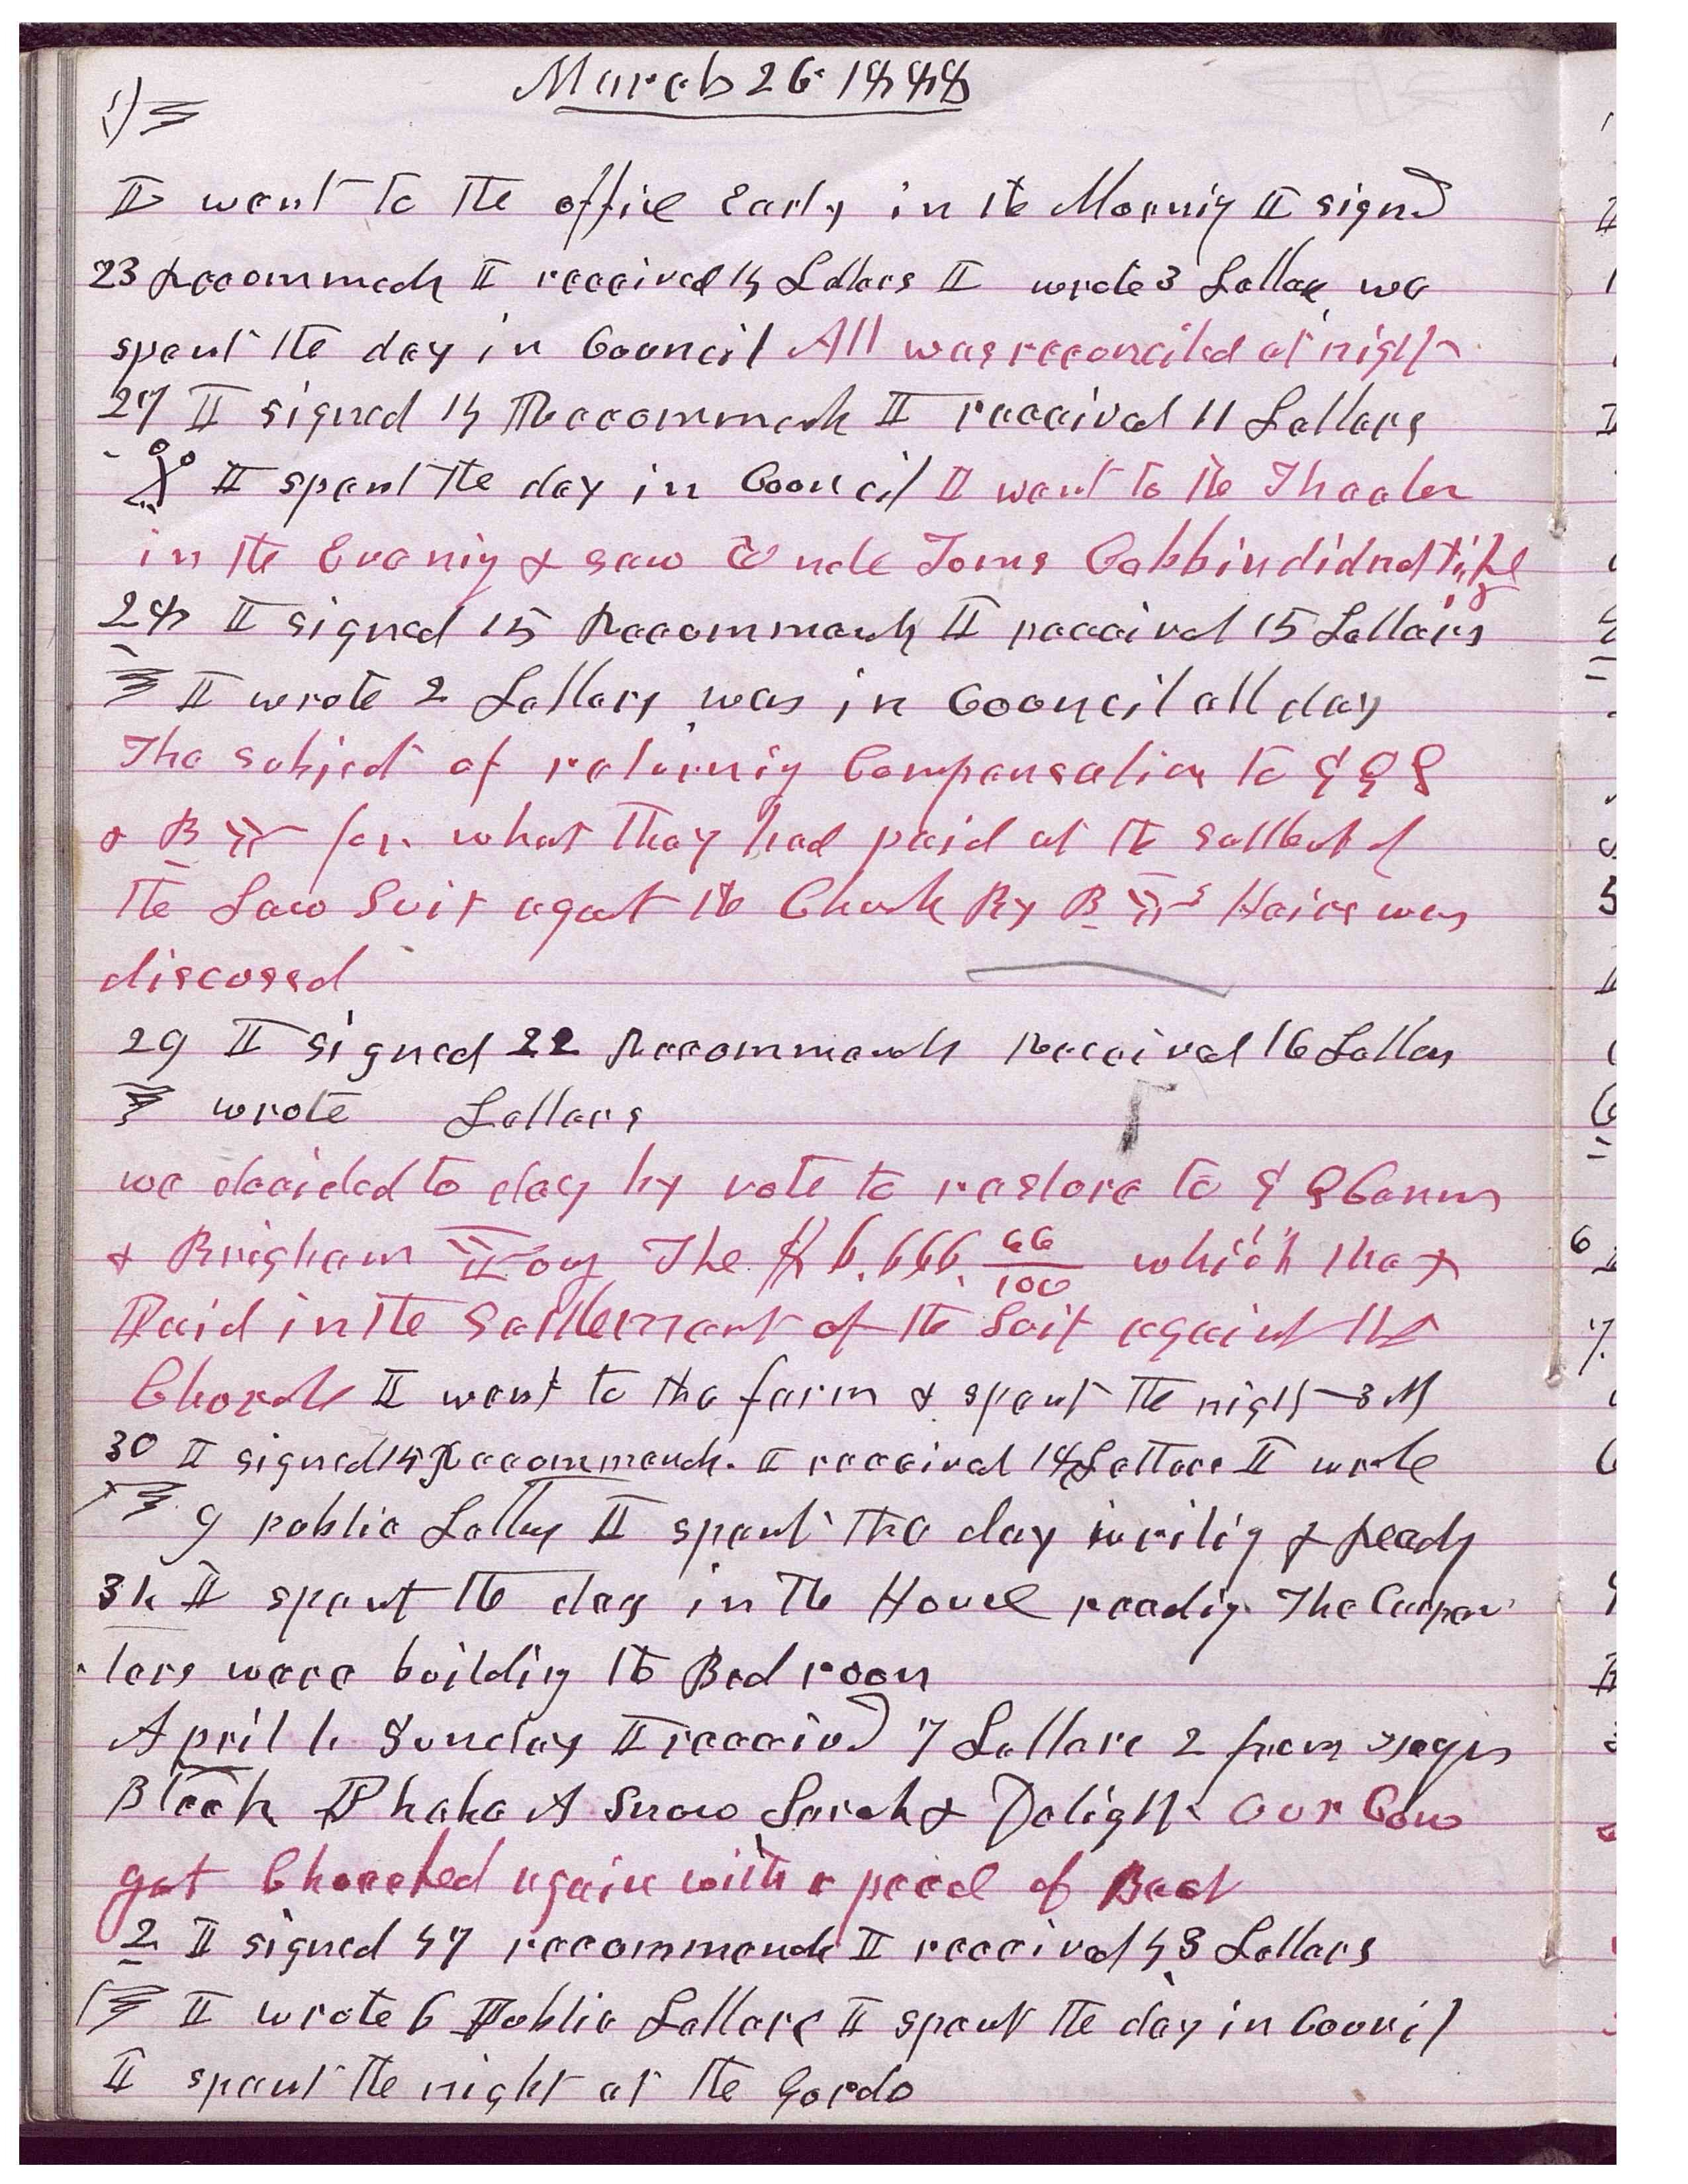 March 26 1888
I went to the office Early in the Morning I signd
23 Recommends I received 14 Letters I wrote 3 Letters we
spent the day in Council All was reconciled at night
27 I signed 14 Recommends I received 11 Letters
I spent the day in Council I went to the Theater
in the Evening & saw Uncle Toms Cabbin did not like
28 I signed 15 Recommends I received 15 Letters
I wrote 2 Letters was in Council all day
The subject of returning Compensation to G Q C
& B Y for what they had paid at the settlement of
the Law Suit against the Church By B Y's Heirs was
discussed
29 I signed 22 Recommends Received 16 Letters
wrote Letters
we decided to day by vote to restore to G Q Cannon
& Brigham Young The $6,666. 66/100 which they
Paid in the Settlement of the Suit against the
Church I went to the farm & spent the night 3 M
30 I signed 14 Recommends. I received 18 Letters I wrote
9 public Letters I spent the day writing & Reading
31. I spent the day in the House reading The Carpen
ters were building the Bed room
April 1. Sunday I received 7 Letters 2 from
Bleek Phebe A Snow Sarah & Delight Our Cow
got Choked again with a piece of Beet
2 I signed 47 recommends I received 43 Letters
I wrote 6 Public Letters I spent the day in Council
I spent the night at the Gardo